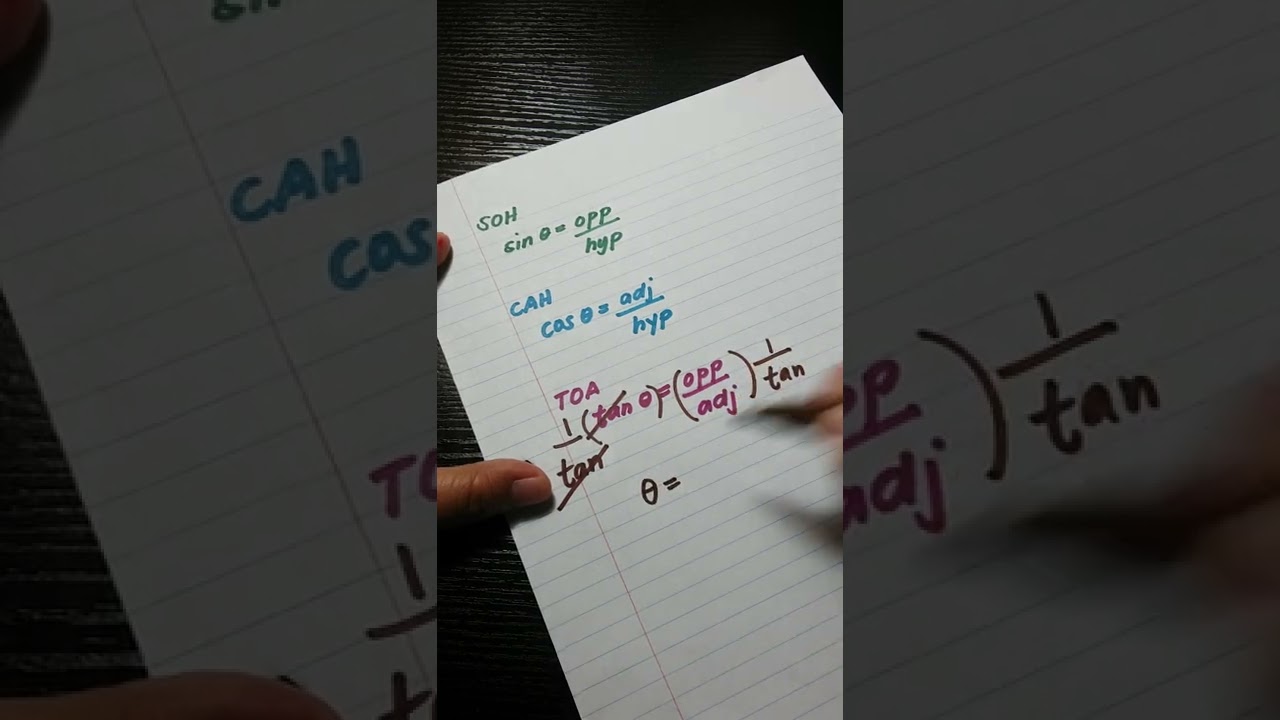 SOH
sin θ = opp/hyp
CAH
cos θ = adj/hyp
TOA
1/tan (tan θ) = (opp/adj) 1/tan
θ =